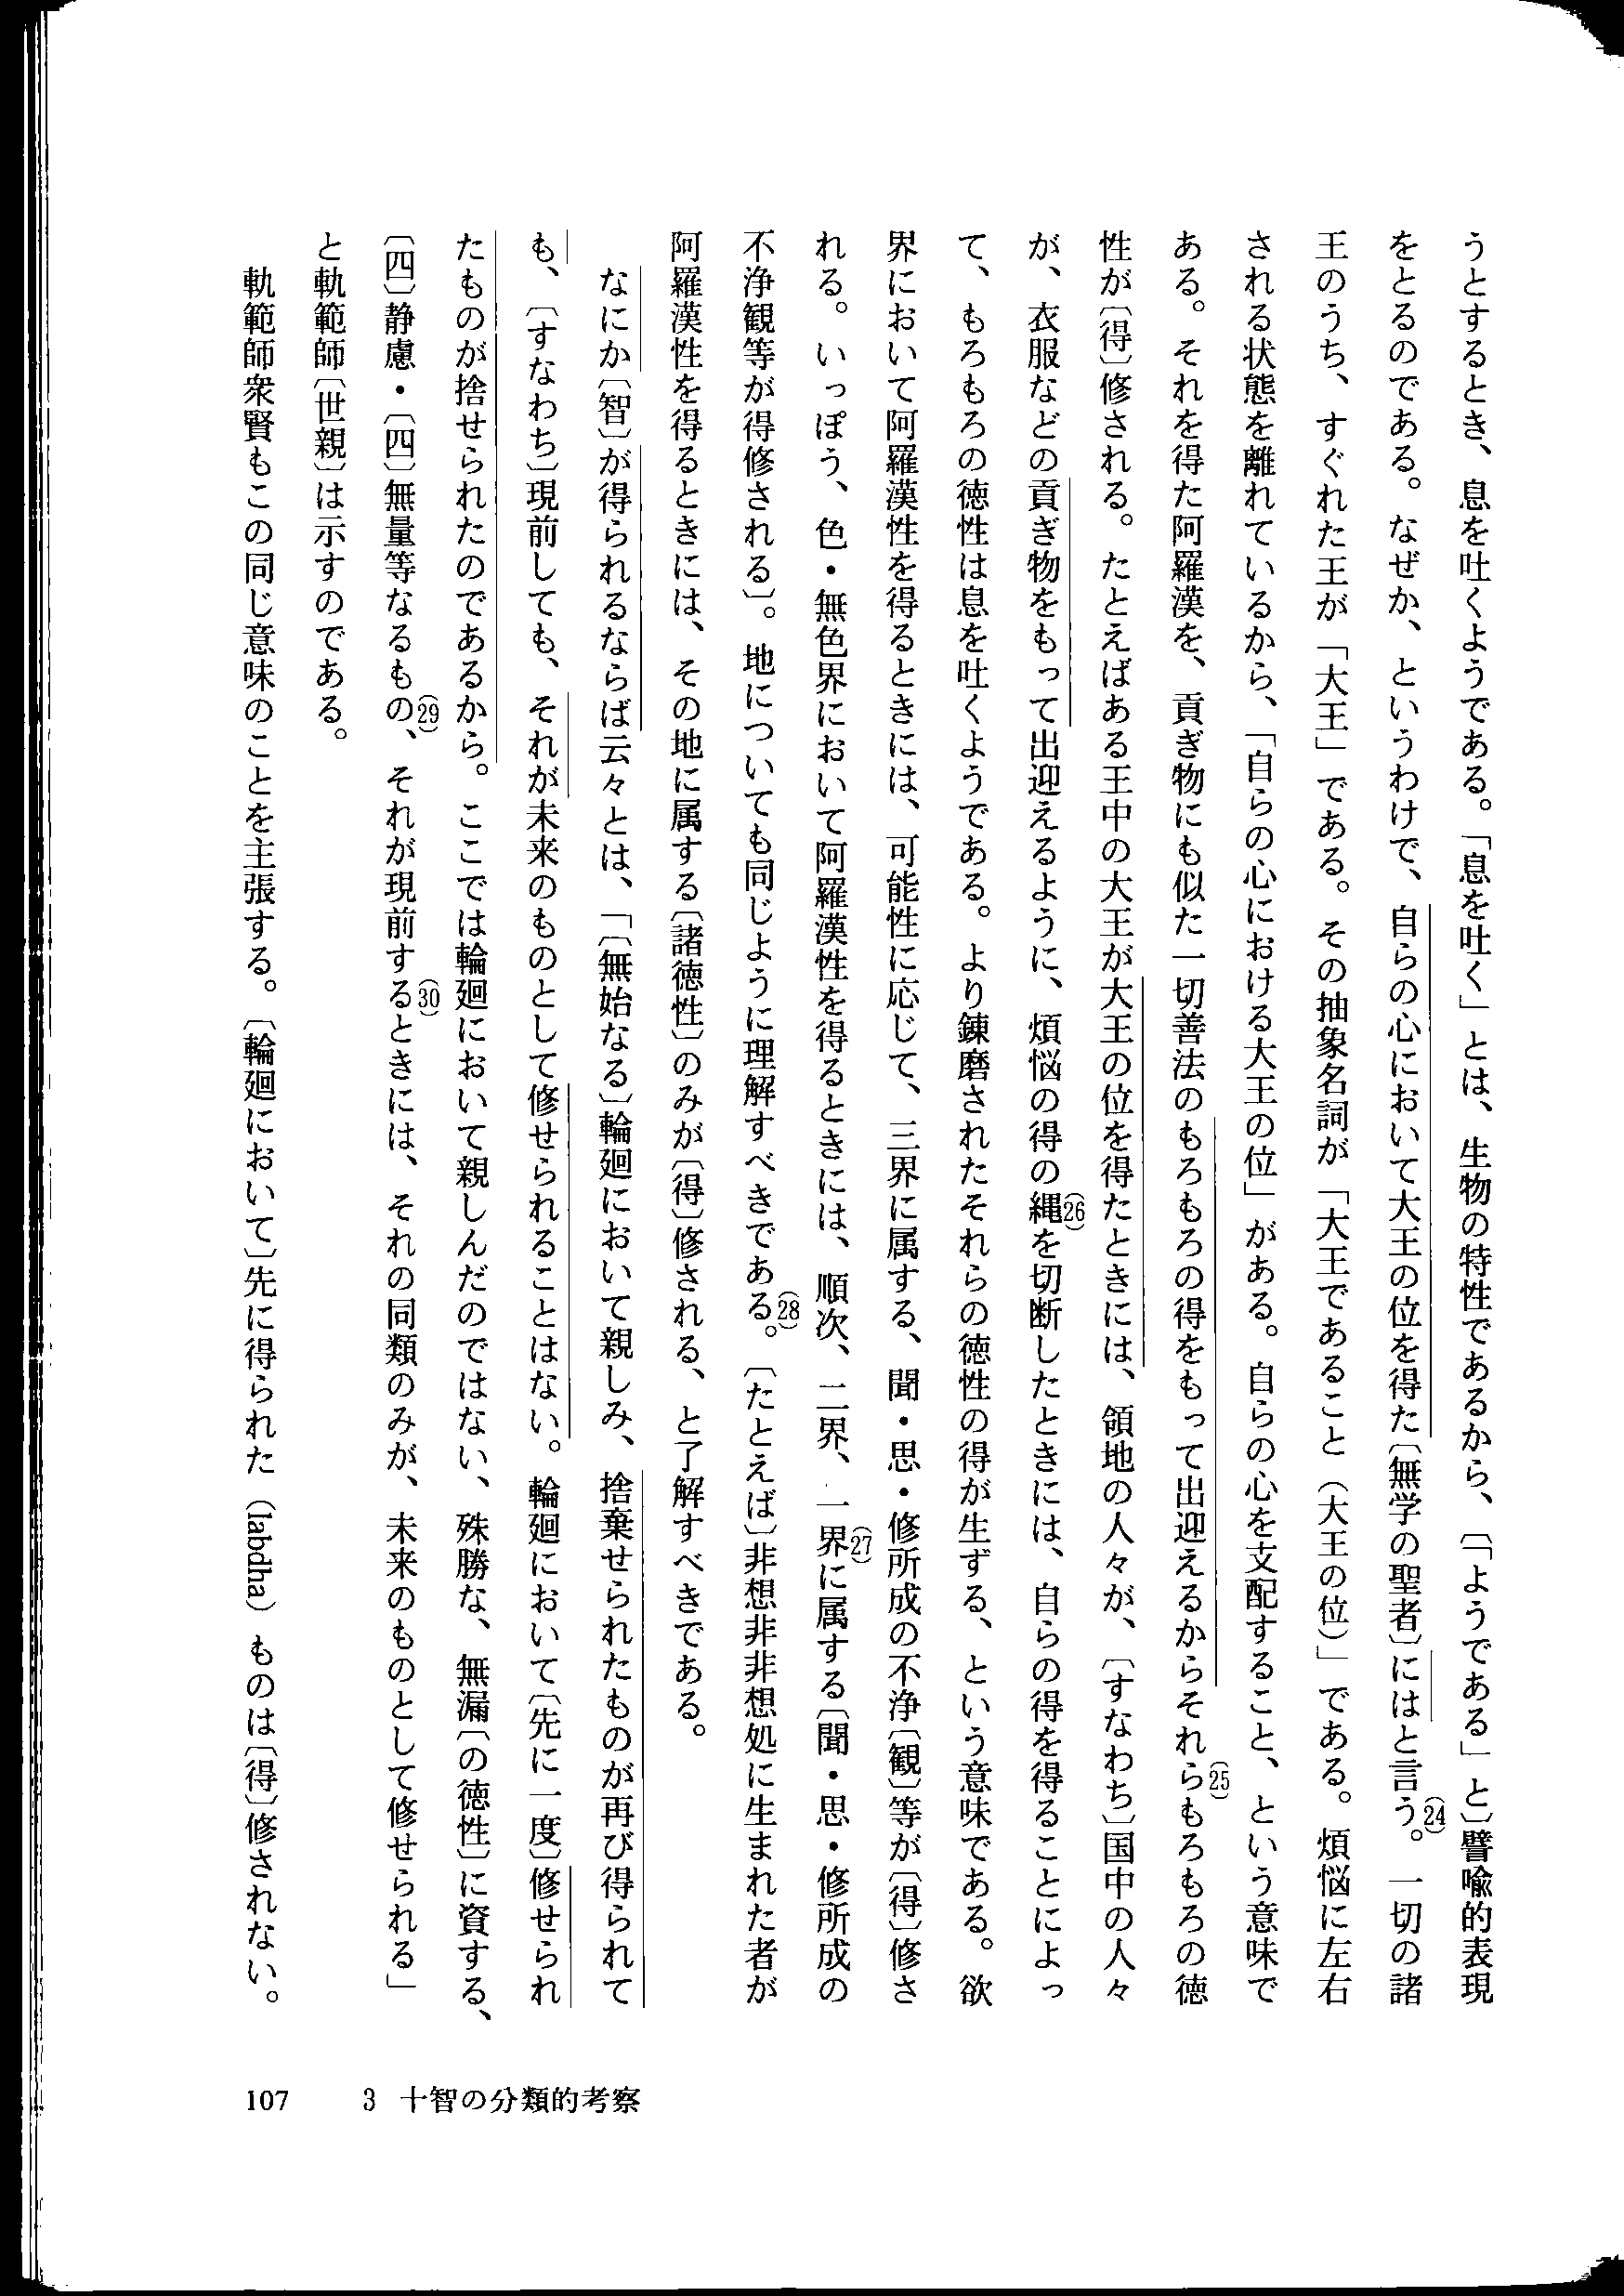 うとするとき、息を吐くようである。「息を吐く」とは、生物の特性であるから、〔「ようである」と〕譬喩的表現
をとるのである。なぜか、というわけで、自らの心において大王の位を得た〔無学の聖者〕にはと言う(24)。一切の諸
王のうち、すぐれた王が「大王」である。その抽象名詞が「大王であること（大王の位）」である。煩悩に左右
される状態を離れているから、「自らの心における大王の位」がある。自らの心を支配すること、という意味で
ある。それを得た阿羅漢を、貢ぎ物にも似た一切善法のもろもろの得をもって出迎えるからそれら(25)もろもろの徳
性が〔得〕修される。たとえばある王中の大王が大王の位を得たときには、領地の人々が、〔すなわち〕国中の人々
が、衣服などの貢ぎ物をもって出迎えるように、煩悩の得の縄(26)を切断したときには、自らの得を得ることによっ
て、もろもろの徳性は息を吐くようである。より錬磨されたそれらの徳性の得が生ずる、という意味である。欲
界において阿羅漢性を得るときには、可能性に応じて、三界に属する、聞・思・修所成の不浄〔観〕等が〔得〕修さ
れる。いっぽう、色・無色界において阿羅漢性を得るときには、順次、二界、一界(27)に属する〔聞・思・修所成の
不浄観等が得修される〕。地についても同じように理解すべきである(28)。〔たとえば〕非想非非想処に生まれた者が
阿羅漢性を得るときには、その地に属する〔諸徳性〕のみが〔得〕修される、と了解すべきである。
なにか〔智〕が得られるならば云々とは、「〔無始なる〕輪廻において親しみ、捨棄せられたものが再び得られて
も、〔すなわち〕現前しても、それが未来のものとして修せられることはない。輪廻において〔先に一度〕修せられ
たものが捨せられたのであるから。ここでは輪廻において親しんだのではない、殊勝な、無漏〔の徳性〕に資する、
〔四〕静慮・〔四〕無量等なるもの(29)、それが現前する(30)ときには、それの同類のみが、未来のものとして修せられる」
と軌範師〔世親〕は示すのである。
軌範師衆賢もこの同じ意味のことを主張する。〔輪廻において〕先に得られた（labdha）ものは〔得〕修されない。
107　3　十智の分類的考察